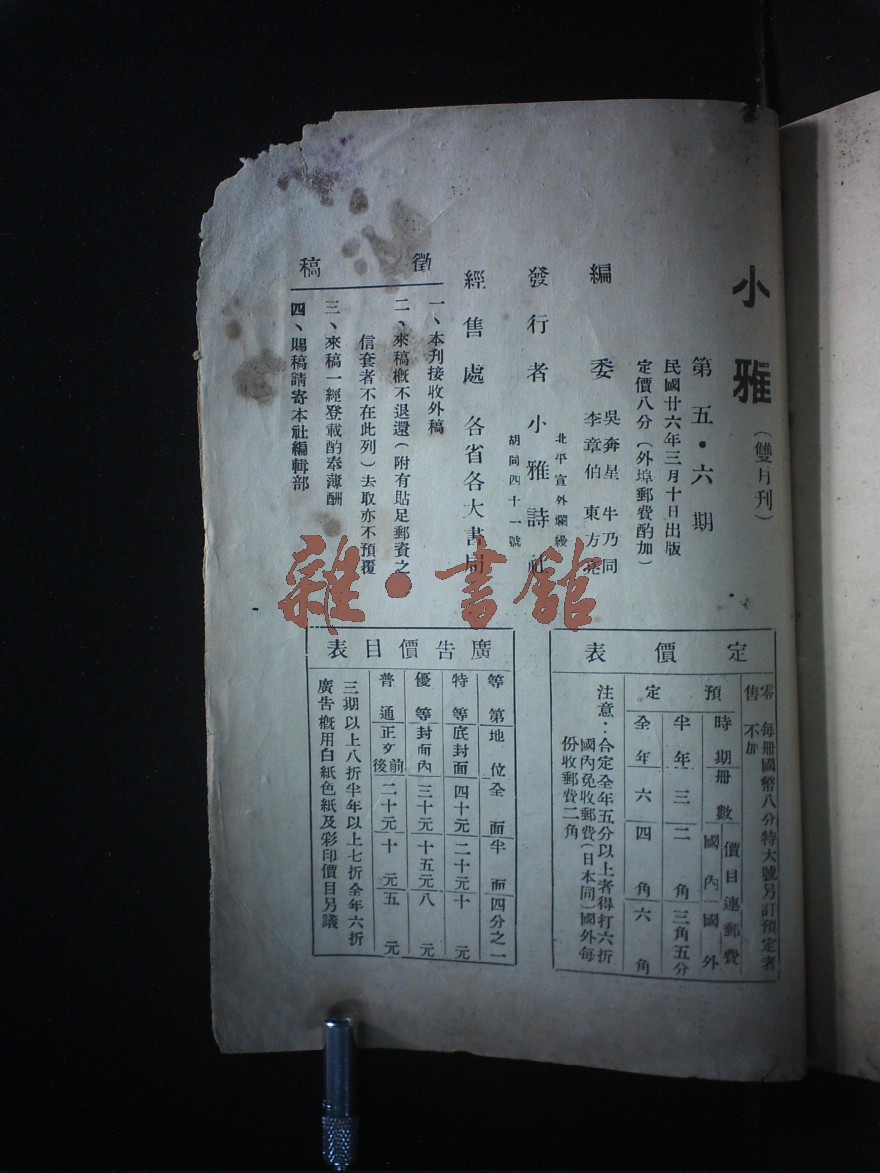 小雅（雙月刊）
第五・六期
民國廿六年三月十日出版
定價八分（外埠郵費酌加）
編委
吳奔星 牛乃同
李章伯 東方亮
發行者 小雅詩社
北平宣外爛縵
胡同四十一號
經售處 各省各大書局
徵稿
一、本刊接收外稿
二、來稿概不退還（附有貼足郵資之
信套者不在此列）去取亦不預覆
三、來稿一經登載酌奉薄酬
四、賜稿請寄本社編輯部
雜・書館
定價表
零售 每冊國幣八分特大號另訂預定者
不加
預定
時期 冊數 價目連郵費
國內 國外
半年 三 二角 三角五分
全年 六 四角 六角
注意：合定全年五分以上者得打六折
國內免收郵費（日本同）國外每
份收郵費二角
廣告價目表
等第 地位 全面 半面 四分之一
特等 底封面 四十元 二十元 十元
優等 封面內 三十元 十五元 八元
普通 正文前後 二十元 十元 五元
三期以上八折半年以上七折全年六折
廣告概用白紙色紙及彩印價目另議